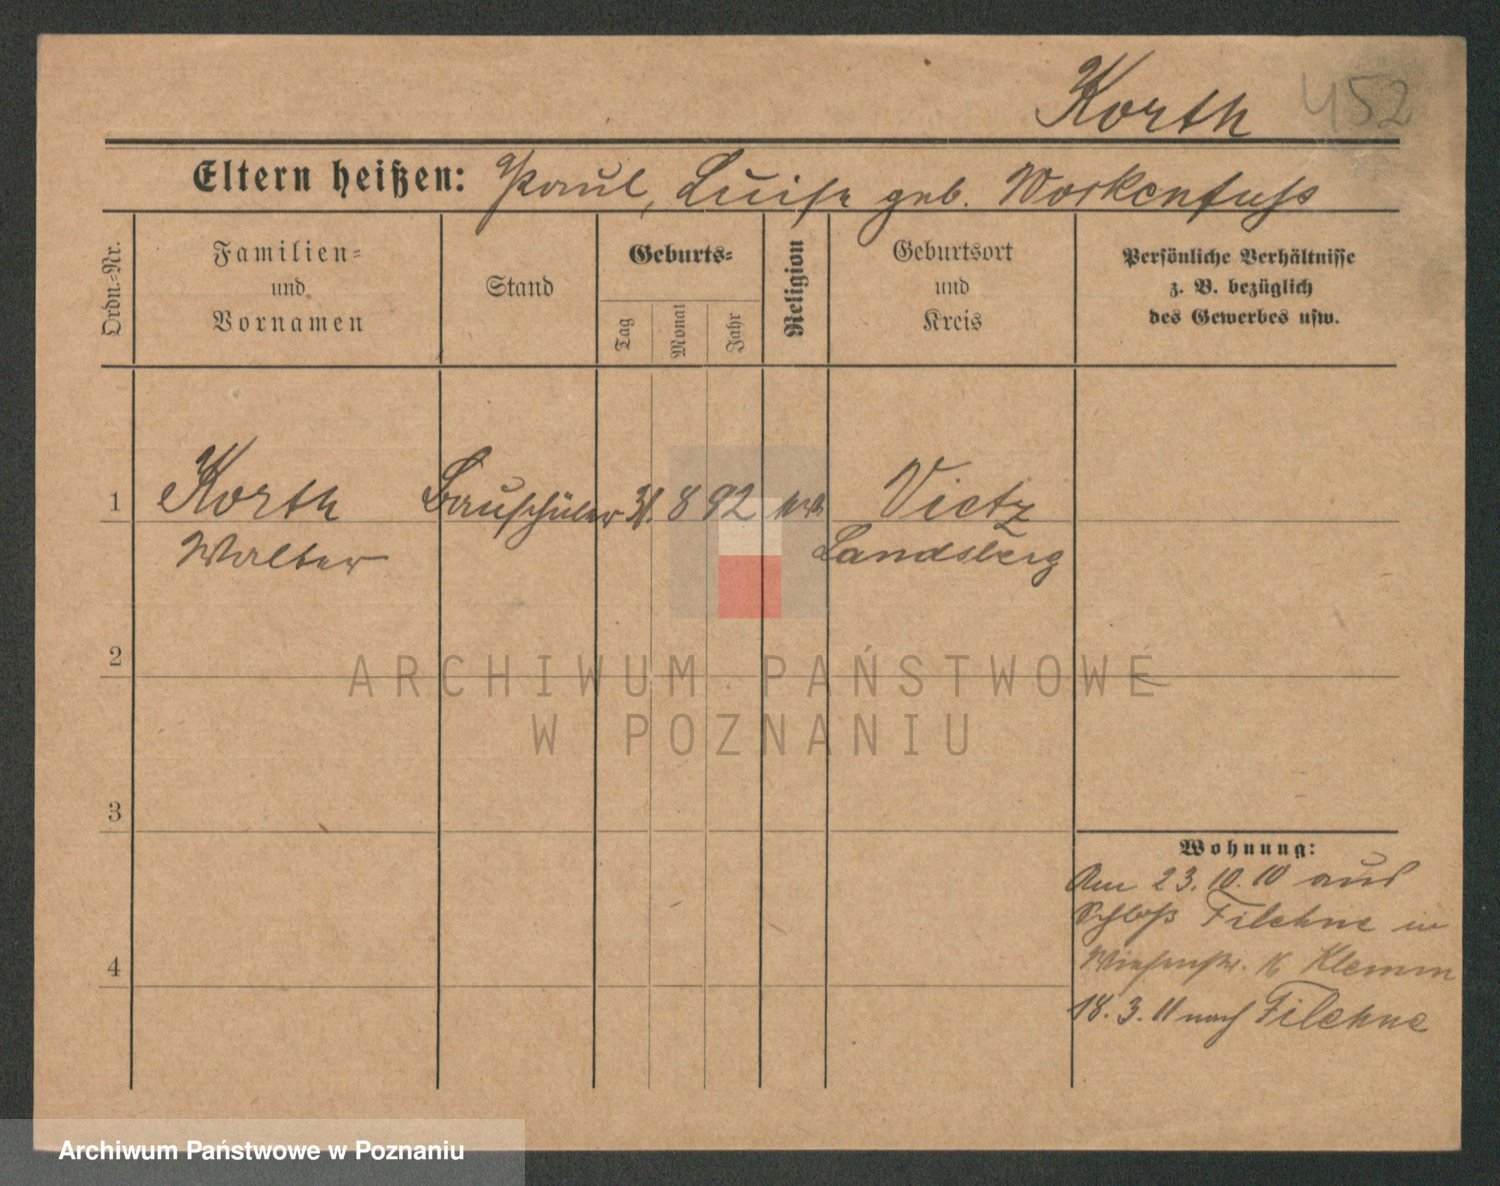 Korth 452
Eltern heißen: Paul, Luise geb. Workenfuß
Ordn.-Nr.
Familien-
und
Vornamen
Stand
Geburts-
Tag
Monat
Jahr
Religion
Geburtsort
und
Kreis
Persönliche Verhältnisse
z. B. bezüglich
des Gewerbes usw.
1 Korth Bauschüler 31. 8 92 Vietz
Walter Landsberg
2
ARCHIWUM PAŃSTWOWE
W POZNANIU
3
Wohnung:
Am 23.10.10 aus
Schloß Filehne in
4 Klemm
18.3.11 nach Filehne
Archiwum Państwowe w Poznaniu